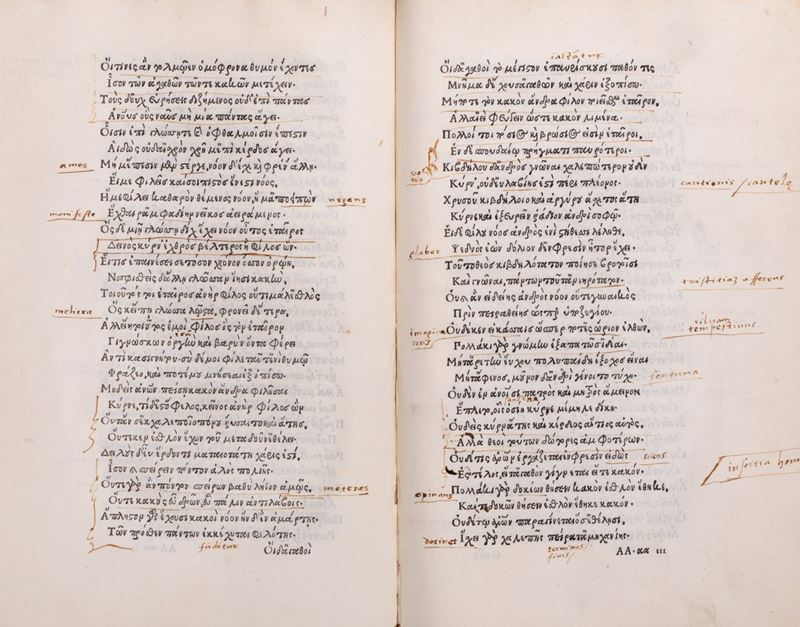 Οἵτινες ἂν τολμῷεν ὁμόφρονα θυμὸν ἔχοντες
Ἶσον τῶν ἀγαθῶν τῶντε κακῶν μετέχειν·
Τοὺς δ' οὐχ εὑρήσεις διζήμενος οὐδ' ἐπὶ πάντας
Ἀνους οὓς ναῦς μὴ μία πάντας ἄγει·
Οἷσιν ἐπὶ γλώσσῃ τε καὶ ὀφθαλμοῖσιν ἔπεστιν
Αἰδὼς οὐδ' αἰσχρὸν χρῆμ' ἔπι κέρδος ἄγει·
amos Μή μ' ἔπεσιν μὲν στέργε, νόον δ' ἔχε καὶ φρένας ἄλλῃ·
Εἴ με φιλεῖς καί σοι πιστὸς ἔνεστι νόος,
Ἤ με φίλει καθαρὸν θέμενος νόον, ἤ μ' ἀποειπὼν negans
manifeste Ἔχθαιρ' ἀμφαδίην νεῖκος ἀειράμενος·
Ὃς δὲ μιῇ γλώσσῃ δίχ' ἔχει νόον οὗτος ἑταῖρος
Δεινὸς κύρν' ἐχθρὸς βέλτερος ἢ φίλος ὤν·
Ἔι τις ἐπαινήσει σε τόσον χρόνον ὅσον ὁρῴης,
Νοσφισθεὶς δ' ἄλλῃ γλῶσσαν ἵησι κακὴν,
Τοιοῦτός τοι ἑταῖρος ἀνὴρ φίλος οὔτι μάλ' ἐσθλὸς
meliora Ὅς κ' εἴπῃ γλώσσᾳ λῷστα, φρονεῖ δ' ἕτερα,
Ἀλλ' εἴη τοιοῦτος ἐμοὶ φίλος ὃς τὸν ἑταῖρον
Γιγνώσκων ὀργὴν καὶ βαρὺν ὄντα φέρει
Ἀντὶ κασιγνήτου· σὺ δέ μοι φίλε ταῦτ' ἐνὶ θυμῷ
Φράζεο, καί ποτέ μου μνήσεαι ἐξοπίσω·
Μηδείς σ' ἀνῶν πείσῃ κακὸν ἄνδρα φιλῆσαι
Κύρνε, τί δ' ἔστ' ὄφελος, κεῖνος ἀνὴρ φίλος ὢν
Οὔτ' ἄν σ' ἐκ χαλεποῖο πόνου ῥύσαιτο καὶ ἄτης,
Οὔτε κεν ἐσθλὸν ἔχων τοῦ μεταδοῦν ἐθέλει·
Δειλοὺς δ' εὖ ἔρδοντι ματαιοτάτη χάρις ἐστὶ,
Ἶσον καὶ σπείρειν πόντον ἁλὸς πολιῆς·
Οὔτε γὰρ ἂν πόντον σπείρων βαθὺ λήϊον ἀμῷς, meteres
Οὔτε κακοὺς εὖ δρῶν, εὖ πάλιν ἀντιλάβοις·
Ἄπληστον γὰρ ἔχουσι κακοὶ νόον ἢν δ' ἓν ἁμάρτῃς·
Τῶν πρόσθεν πάντων ἐκκέχυται φιλότης·
funditur Οἱ δ' ἀγαθοὶ
Οἱ δ' ἀγαθοὶ τὸ μέγιστον ἐπαυρίσκουσι παθόντες
Μνῆμα δ' ἔχουσ' ἀγαθῶν καὶ χάριν ἐξοπίσω·
Μήποτε τὸν κακὸν ἄνδρα φίλον ποιεῖσθαι ἑταῖρον,
Ἀλλ' αἰεὶ φεύγειν ὥστε κακὸν λιμένα·
Πολλοί τοι πόσιος καὶ βρώσιός εἰσιν ἑταῖροι,
Ἐν δὲ σπουδαίῳ πρήγματι παυρότεροι·
Κιβδήλου δ' ἀνδρὸς γνῶναι χαλεπώτερον οὐδὲν cautionis / cautela
Κύρν', οὐδ' εὐλαβίης ἐστὶ περὶ πλέονος·
Χρυσοῦ κιβδήλοιο καὶ ἀργύρου ἄσχετος ἄτη
Κύρνε καὶ ἐξευρεῖν ῥᾴδιον ἀνδρὶ σοφῷ·
Εἰ δὲ φίλου νόος ἀνδρὸς ἐνὶ στήθεσι λελήθῃ,
Ψεδνὸς ἐὼν δόλιον δ' ἐν φρεσὶν ἦτορ ἔχει·
Τοῦτο θεὸς κιβδηλότατον ποίησε βροτοῖσι
Καὶ γνῶναι, πάντων τοῦτ' ἀνιηρότατον· tristitiam afferens
Οὐδ' ἂν εἰδείης ἀνδρὸς νόον οὔτε γυναικὸς
Πρὶν πειραθείης ὥσπερ ὑποζυγίου·
Οὐδέ κεν εἰκάσσαις ὥσπερ ποτ' ἐς ὥριον ἐλθὼν, tempestiuus
Πολλάκι γὰρ γνώμην ἐξαπατῶσ' ἰδέαι·
Μήτ' ἀρετὴν εὔχου πολυπαΐδη ἔξοχος εἶναι
Μήτ' ἄφενος, μοῦνον δ' ἀνδρὶ γένοιτο τύχη· fortuna
Οὐδὲν ἐν ἀνοισι πατρὸς καὶ μητρὸς ἄμεινον
Ἔπλετο, οἷς ὁσίη κύρνε μέμηλε δίκη·
Οὐδεὶς κύρν' ἄτης καὶ κέρδεος αἴτιος αὐτὸς,
Ἀλλὰ θεοὶ τούτων δώτορες ἀμφοτέρων·
Οὐδέ τις ἀνων ἐργάζεται ἐν φρεσὶν εἰδὼς sciens
Ἐς τέλος, εἴτ' ἀγαθὸν γίγνεται εἴτε κακόν·
opinans Πολλάκι γὰρ δοκέων θήσειν κακὸν ἐσθλὸν ἔθηκε,
Καί τε δοκῶν θήσειν ἐσθλὸν ἔθηκε κακόν·
Οὐδέ τῳ ἀνων παραγίνεται ὅσσ' ἐθέλησι,
detinet Ἴσχει γὰρ χαλεπῆς πείρατ' ἀμηχανίης·
terminus / finis AA· αα iii